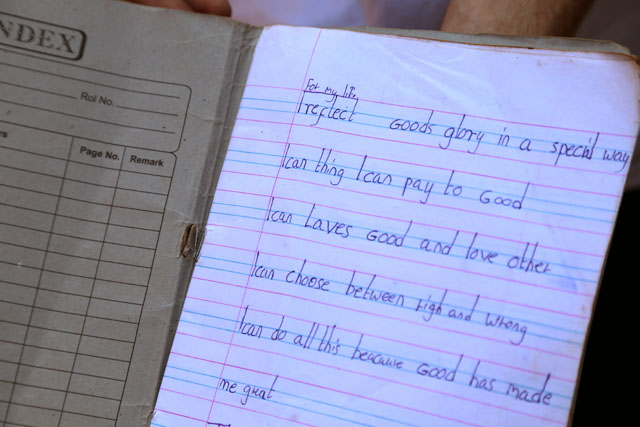 NDEX
Rol No.
es
Page No.
Remark
For my life
I reflect Goods glory in a special way
I can thing I can pay to Good
I can Laves Good and love other
I can choose between righ and wrong
I can do all this beacause Good has made
me great